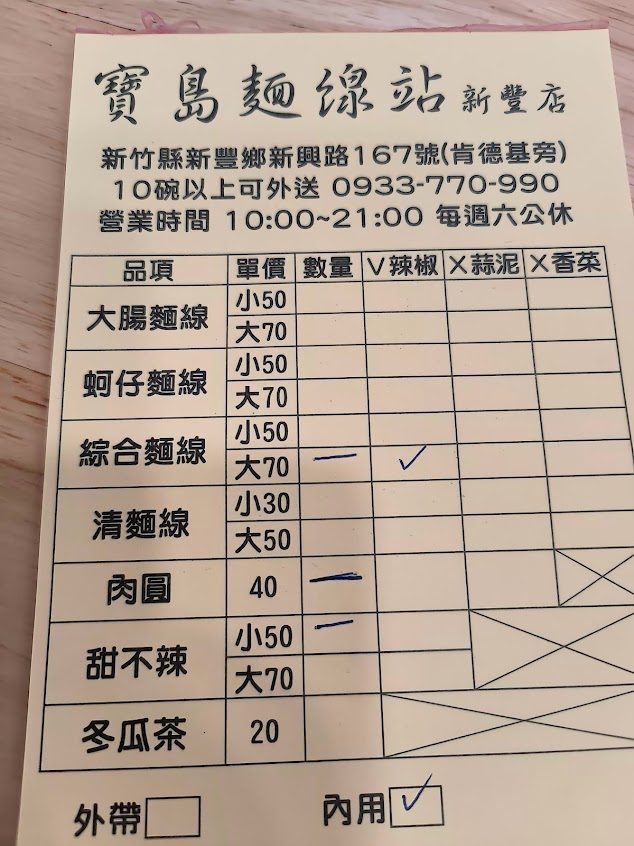 寶島麵線站 新豐店
新竹縣新豐鄉新興路167號(肯德基旁)
10碗以上可外送 0933-770-990
營業時間 10:00~21:00 每週六公休
品項 單價 數量 V辣椒 X蒜泥 X香菜
大腸麵線 小50
大70
蚵仔麵線 小50
大70
綜合麵線 小50
大70 一 ✓
清麵線 小30
大50
肉圓 40 一
甜不辣 小50 一
大70
冬瓜茶 20
外帶 內用 ✓